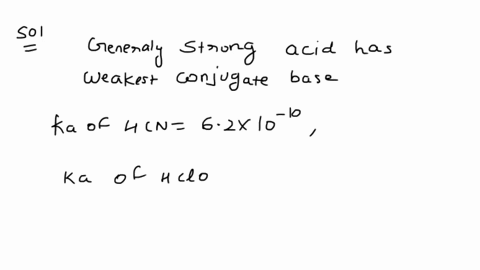 Sol
Generaly strong acid has
weakest conjugate base
Ka of HCN = 6.2x10^-10,
Ka of HClO